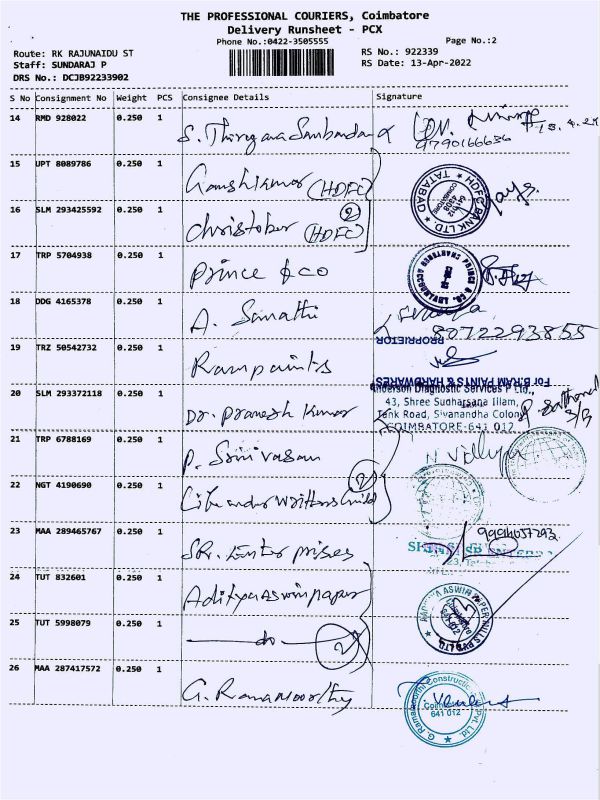 THE PROFESSIONAL COURIERS, Coimbatore
Delivery Runsheet - PCX
Phone No.:0422-3505555
Page No.:2
Route: RK RAJUNAIDU ST
RS No.: 922339
Staff: SUNDARAJ P
RS Date: 13-Apr-2022
DRS No.: DCJB92233902
S No Consignment No Weight PCS Consignee Details Signature
14 RMD 928022 0.250 1 S.
9790166636
15 UPT 8089786 0.250 1 (HDFC)
HDFC BANK LTD
TATABAD
16 SLM 293425592 0.250 1 Christober (HDFC) 2
17 TRP 5704938 0.250 1 Prince & co
18 DDG 4165378 0.250 1 A.
8072293855
PROPRIETOR
19 TRZ 50542732 0.250 1 Rampaints
For B.RAM PAINTS & HARDWARES
20 SLM 293372118 0.250 1 Dr. Pranesh Kumar
Anderson Diagnostic Services P Ltd.,
43, Shree Sudharsana Illam,
Tank Road, Sivanandha Colony
COIMBATORE-641 012
21 TRP 6788169 0.250 1 P. Srinivasan
22 NGT 4190690 0.250 1 2
23 MAA 289465767 0.250 1 SR. Enterprises
24 TUT 832601 0.250 1 Adityaaswinpaper
25 TUT 5998079 0.250 1 do 2
26 MAA 287417572 0.250 1 G. Ramamoorthy
G. Ramamoorthi Constructions Pvt. Ltd.
641 012